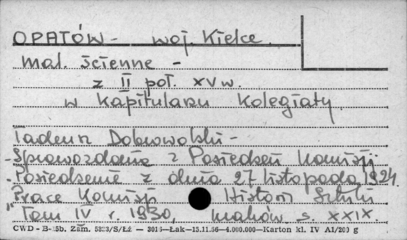 OPATÓW - woj. Kielce
Mal. ścienne -
z II poł. XV w.
w Kapitularzu Kolegiaty
Tadeusz Dobrowolski -
- Sprawozdania z Posiedzeń Komisji
- Posiedzenie z dnia 27 listopada 1924.
"Prace Komisji Historii Sztuki
Tom IV r. 1930, Kraków s. XXIX
CWD - B-35b. Zam. /Łd — — Łak—15.11.56—4.000.000—Karton kl. IV A1/200 g